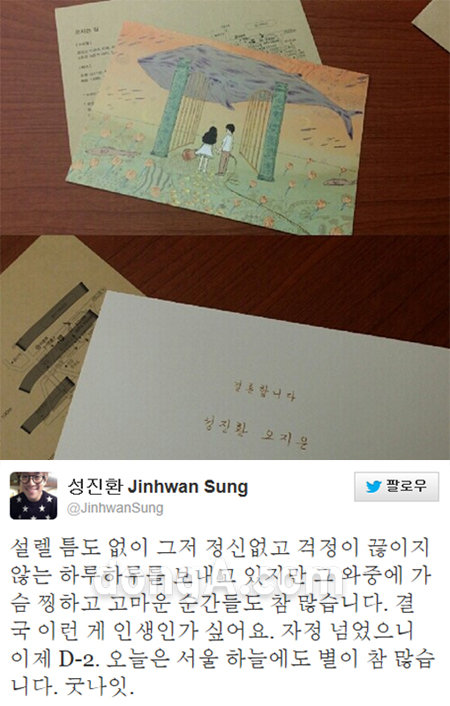 오시는 길
결혼합니다
성진환 오지은
성진환 Jinhwan Sung
@JinhwanSung
팔로우
설렐 틈도 없이 그저 정신없고 걱정이 끊이지
않는 하루하루를 보내고 있지만 그 와중에 가
슴 찡하고 고마운 순간들도 참 많습니다. 결
국 이런 게 인생인가 싶어요. 자정 넘었으니
이제 D-2. 오늘은 서울 하늘에도 별이 참 많습
니다. 굿나잇.
donga.com